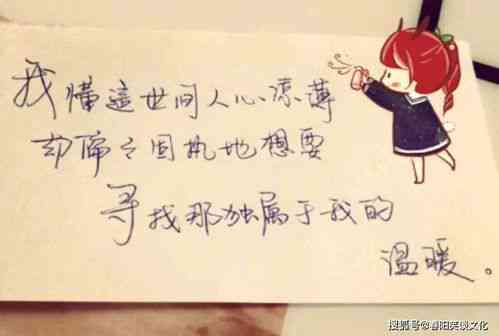 我懂這世间人心凉薄
却偏偏固执地想要
寻找那独属于我的
温暖。
搜狐号@春阳笑谈文化